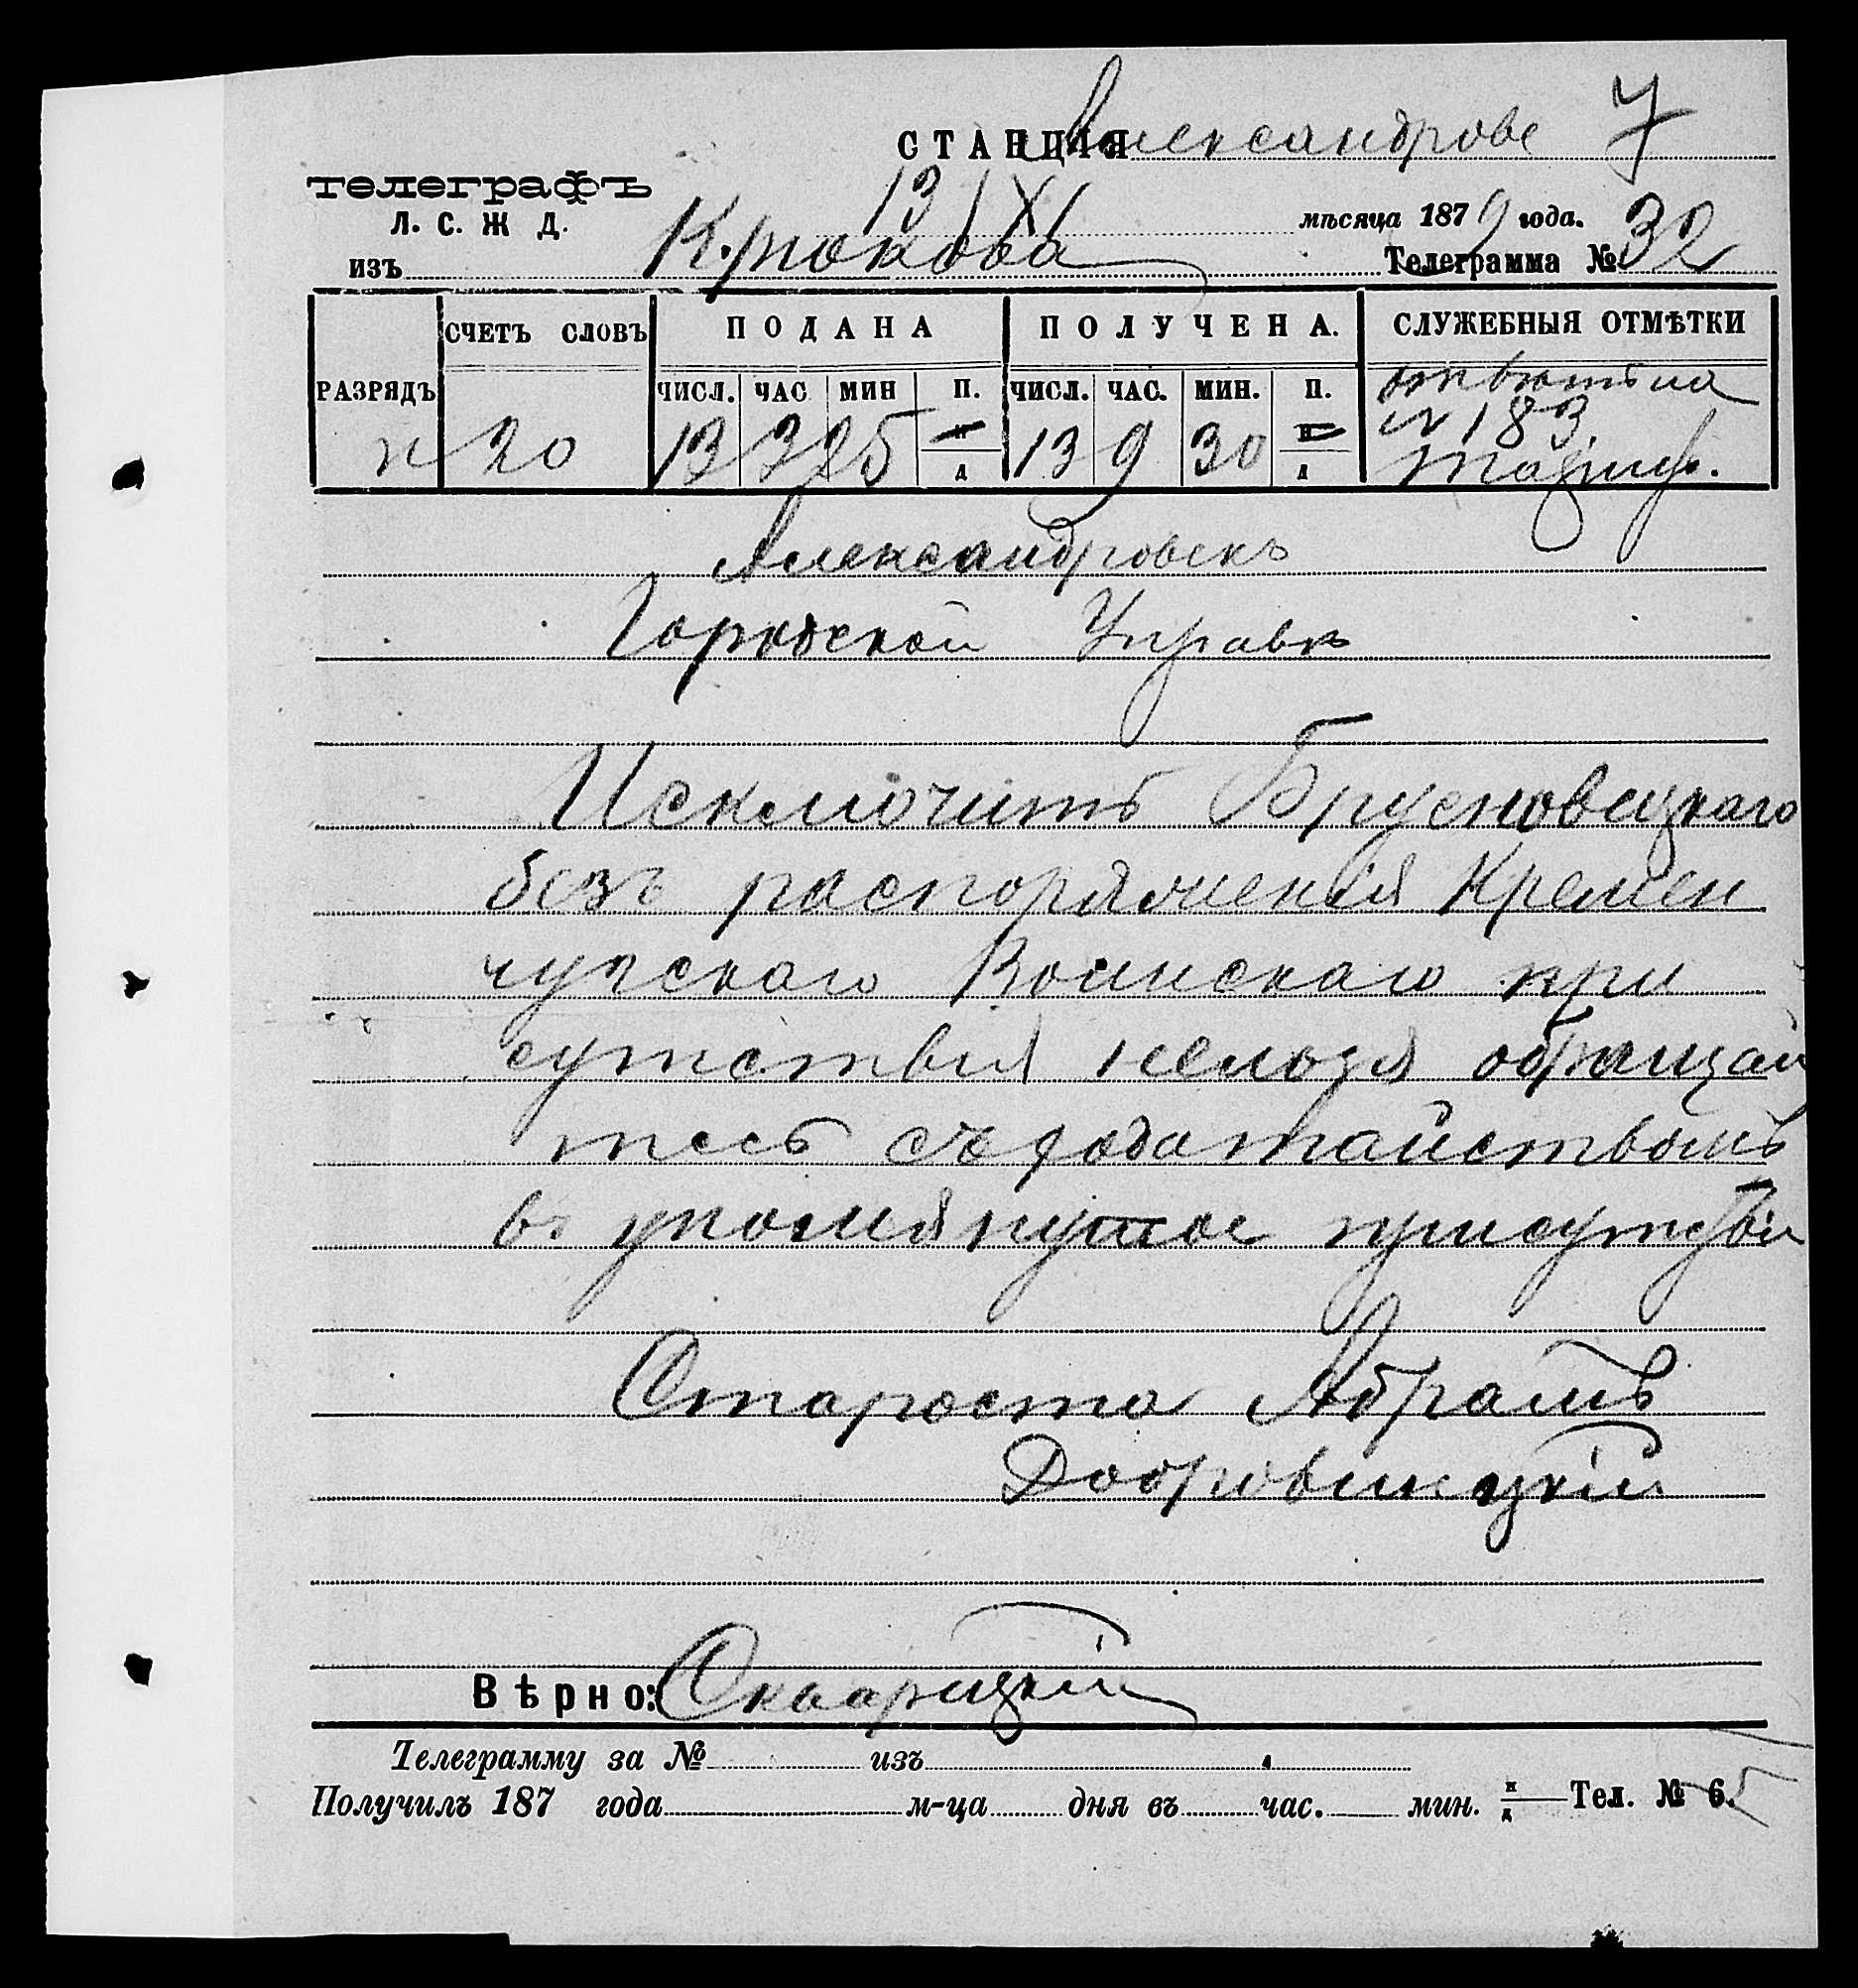 СТАНЦІЯ Александрове 7
телеграфъ
Л. С. Ж Д.
13/XI мѣсяца 1879 года.
изъ Крюкова Телеграмма № 32
РАЗРЯДЪ СЧЕТЪ СЛОВЪ ПОДАНА ПОЛУЧЕНА. СЛУЖЕБНЫЯ ОТМѢТКИ
ЧИСЛ. ЧАС МИН П. ЧИСЛ. ЧАС. МИН. П.
п 20 13 3 25 п/д 13 9 30 п/д
№ 183
Александровскъ
Городской Управѣ
Исключить Брусновецкаго
безъ распоряженія Кремен
чугскаго Воинскаго при
сутствія нельзя обращай
тесь съ ходатайствомъ
въ упомянутое присутствіи
Староста Абрамъ
Добровицкій
Вѣрно: Скварецкій
Телеграмму за № изъ
Получилъ 187 года м-ца дня въ час. мин. н/д Тел. № 6.